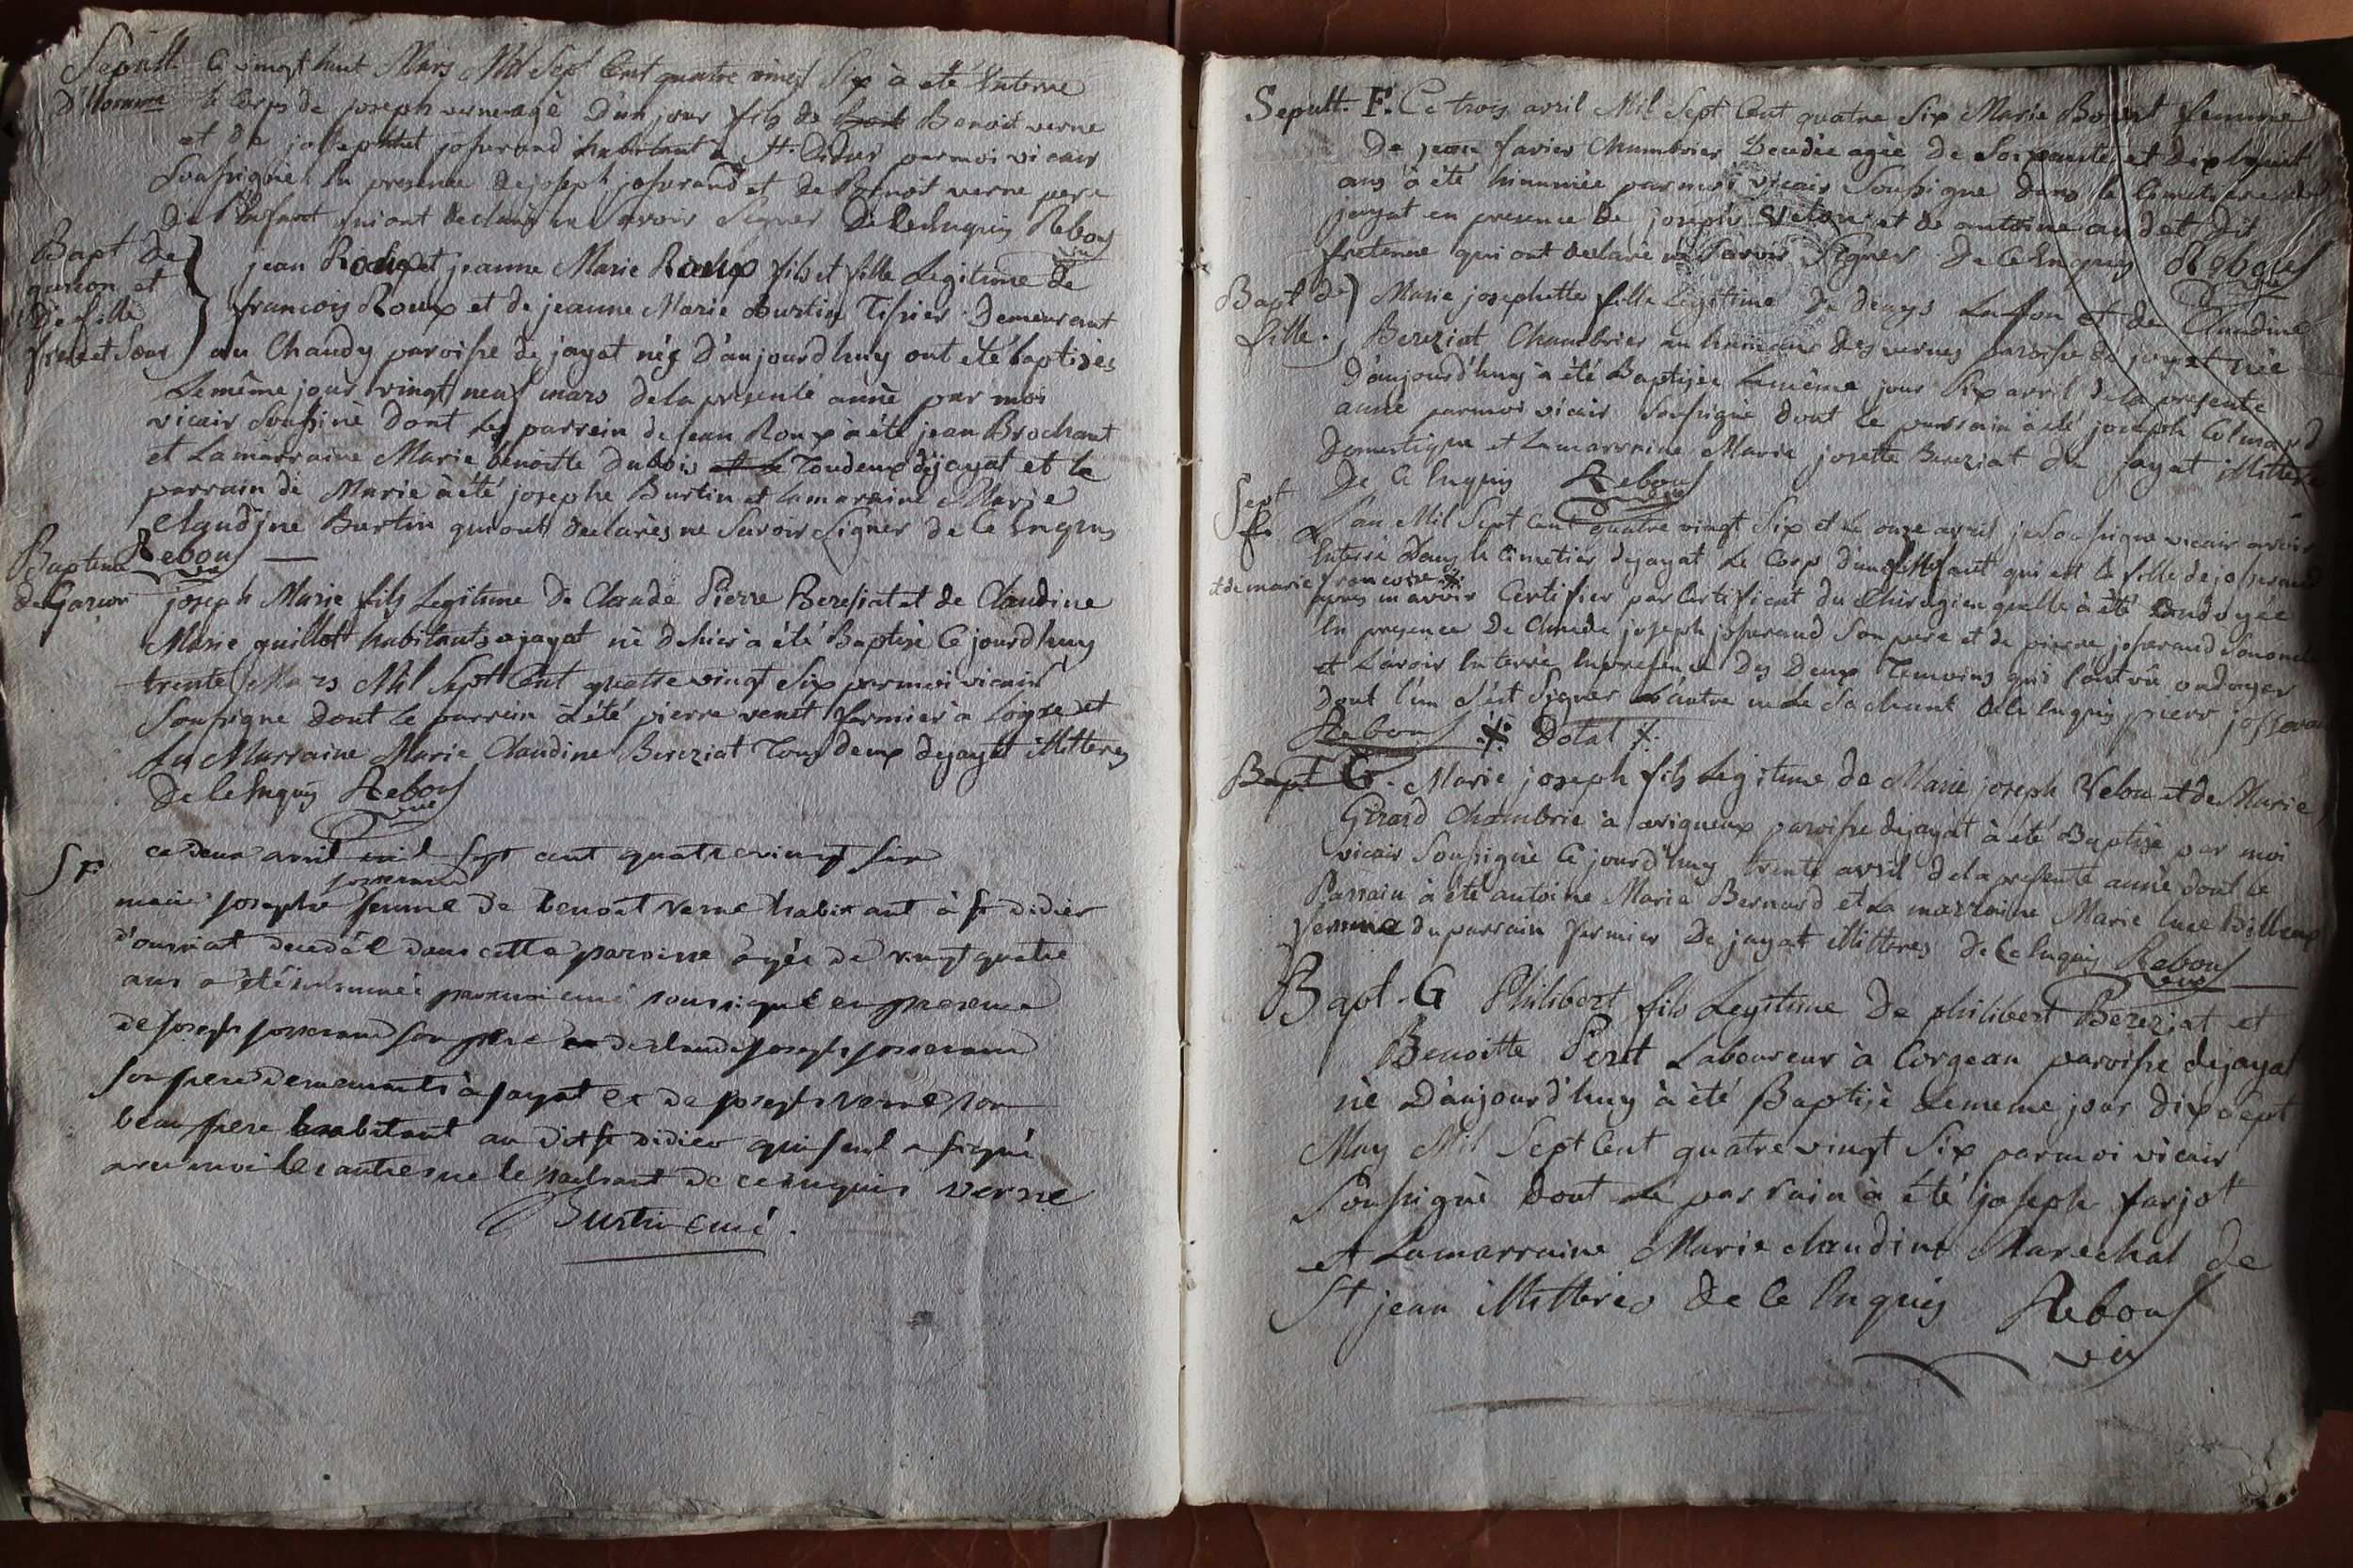 Sepult. Ce vingt huit Mars Mil Sept Cent quatre vingt Six à été Enterré
D'homme le Corps de joseph verne agé D'un jour fils de Benoit verne
et de josephtet josserand habitant a St. Didier par moi vicair
Soussigné En presence de joseph josserand et de Benoit verne pere
De l'Enfant qui ont declaré ne Savoir Signer De Ce Enquis Rebouf
vic
Bapt De
garcon et
De fille
frere et Soeur
jean Roux et jeanne Marie Roux fils et fille Legitime de
francois Roux et de jeanne Marie Burtin Tissier Demeurant
au Chaudy paroisse de jayat nés D'aujourdhuy ont été baptisés
Le même jour vingt neuf mars de la presente anné par moi
vicair Soussiné Dont Les parrein de jean Roux à été jean Brochant
et La marraine Marie benoitte dubois et Le Toudeux dejayat et le
parrain de Marie à été josephe Burtin et la maraine Marie
Claudine Burtin qui ont declarés ne Savoir Signer de Ce Enquis
Rebouf
Bapteme
De Garcon joseph Marie fils Legitime De Claude Pierre Beresiat et de Claudine
Marie guillott habitants a jayat né dehier à été Baptisé Ce jourdhuy
trente Mars Mil Sept Cent quatre vingt Six par moi vicair
Soussigne Dont Le parrein à été pierre venet fermier à Loize et
La Marraine Marie Claudine Bereziat Tous deux dejayat illitteres
De Ce Enquis Rebouf
vic
S F. ce deux avril mil sept cent quatre vingt six
josserand
marie josephe femme de benoit verne habitant à st didier
d'oussiat decedée dans cette paroisse agée de vingt quatre
ans a été inhumée par moi curé soussigné en presence
de joseph josserand son pere de claude joseph josserand
son frere demeurants à jayat et de joseph verne son
beau frere habitant au dit st didier qui seul a signé
avec moi les autres ne le sachant de ce enquis verne
Burtin curé.
Sepult. F. Ce trois avril Mil Sept Cent quatre Six Marie femme
De jean favier Chambrier Decedée agée de Soixante et dix huit
ans à été hinumée par moi vicair Soussigne dans le Cimetiere de
jayat en presence De joseph Velon et de antoine audet dit
fretenne qui ont declaré ne Savoir Signer De Ce Enquis Rebouf
Bapt de
fille.
Marie josephette fille Legitime De denys Laffon et de Claudine
Bereziat Chambrier au hameau des vernes paroisse de jayat née
D'aujourd'huy à été Baptisée Le même jour Six avril de la presente
anné par moi vicair Soussigné dont le parrain à été joseph Colmard
Domestique et La marraine Marie josette Bereziat de jayat illitteré
De Ce Enquis Rebouf
Sept
fe L'an Mil Sept Cent quatre vingt Six et le onze avril je Soussigne vicair avoir
Enterré Dans le Cimetier dejayat Le Corps d'un Enfant qui est la fille de josserand
et de marie francoise
apres m'avoir Certifier par Certificat du Chirugien quelle à été Ondoyée
En presence De Claude joseph josserand Son pere et de pierre josserand Son oncle
et L'avoir Enterré En presence Des Deux Temoins qui l'ont vû ondoyer
Dont l'un S'est Signer L'autre ne Le Sachant de Ce Enquis pierr josseran
Rebouf Dotal
Bapt G. Marie joseph fils Legitime de Marie joseph Velon et de Marie
Girard Chambrie à avigneux paroisse dejayat à été Baptisé par moi
vicair Soussigné Ce jourd'huy trente avril de la presente année dont Le
Parrain à été antoine Marie Bernard et La marraine Marie Luce Billoux
femme du parrain fermier De jayat illitteres de Ce Enquis Rebouf
vic
Bapt. G Philibert fils Legitime De philibert Bereziat et
Benoitte Peret Laboureur à Corgean paroisse dejayat
né D'aujourd'huy à été Baptisé Le meme jour dix Sept
May Mil Sept Cent quatre vingt Six par moi vicair
Soussigné Dont Le parrain à été joseph farjot
et La marraine Marie claudine Marechal de
St jean illitteres De Ce Enquis Rebouf
vic